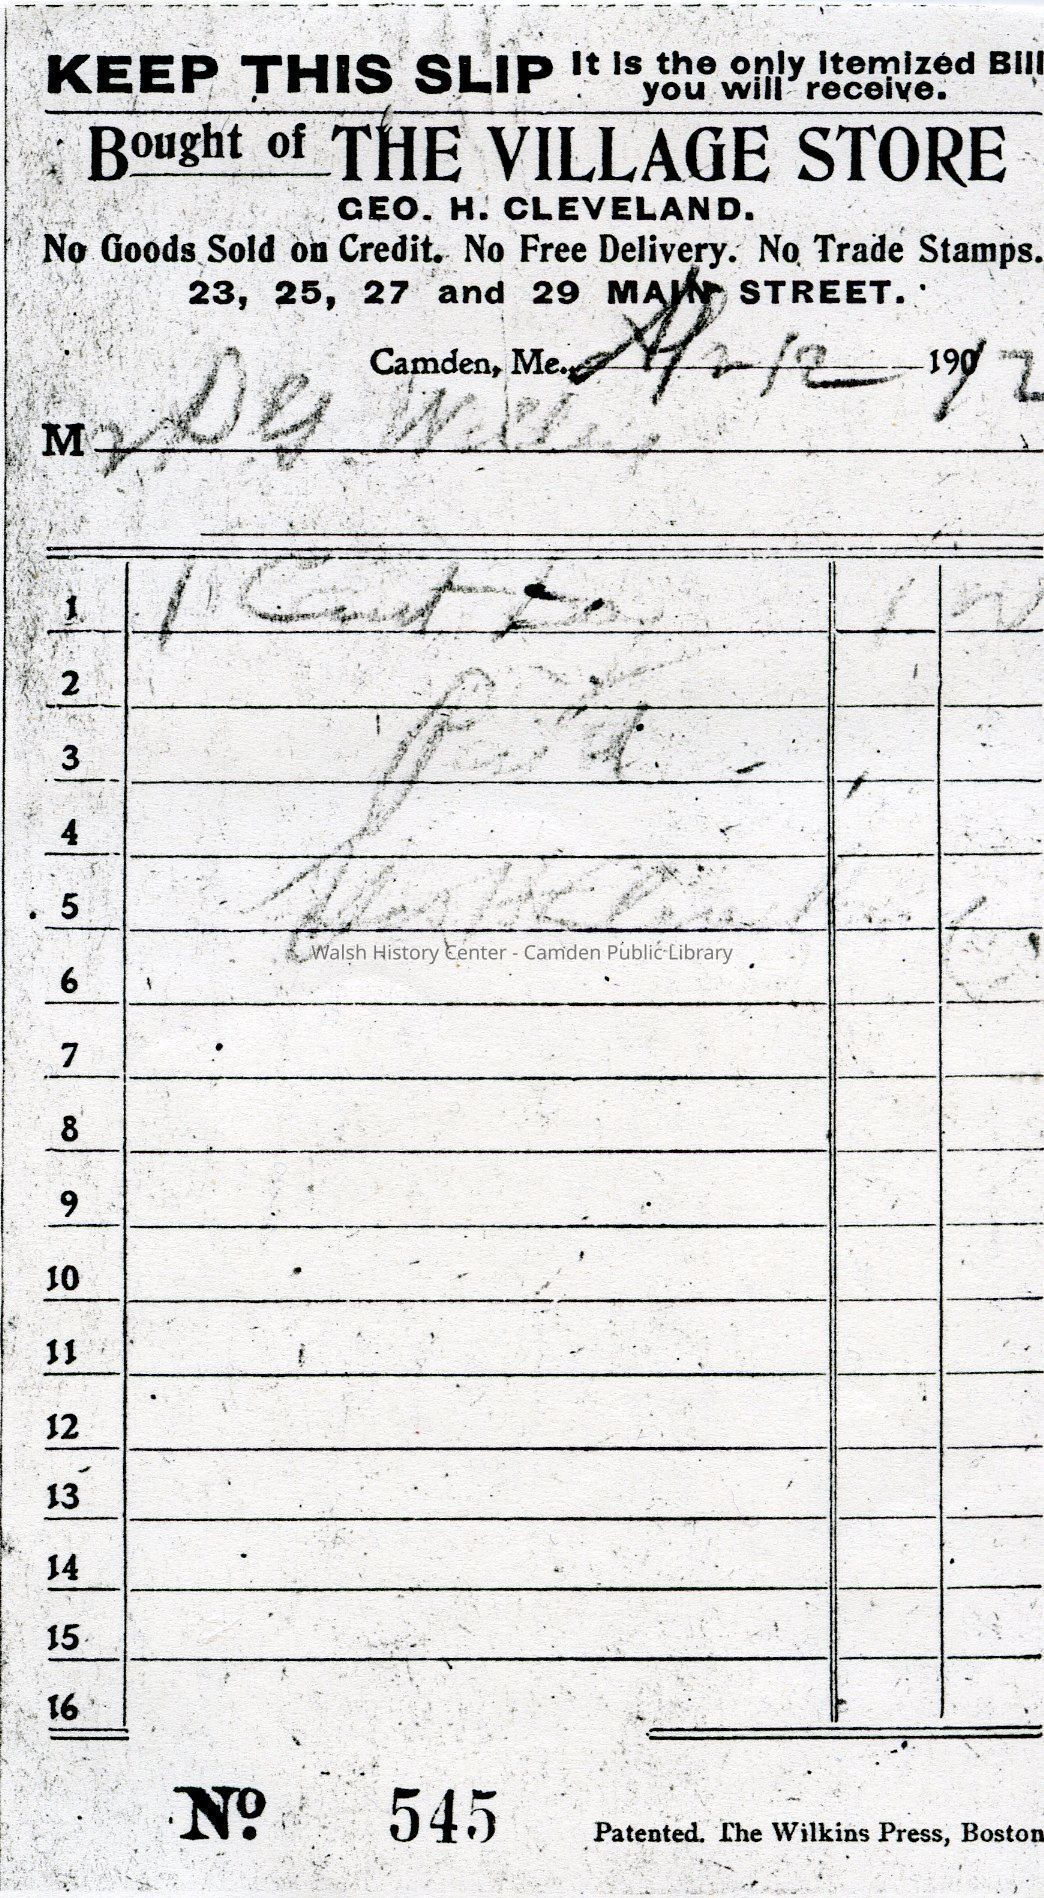 KEEP THIS SLIP It is the only itemized Bill
you will receive.
Bought of THE VILLAGE STORE
GEO. H. CLEVELAND.
No Goods Sold on Credit. No Free Delivery. No Trade Stamps.
23, 25, 27 and 29 MAIN STREET.
Camden, Me., Apr 12 1912
Mr D G Willey
1 1
2
3 Paid
4
5
Walsh History Center - Camden Public Library
6
7
8
9
10
11
12
13
14
15
16
No. 545
Patented. The Wilkins Press, Boston